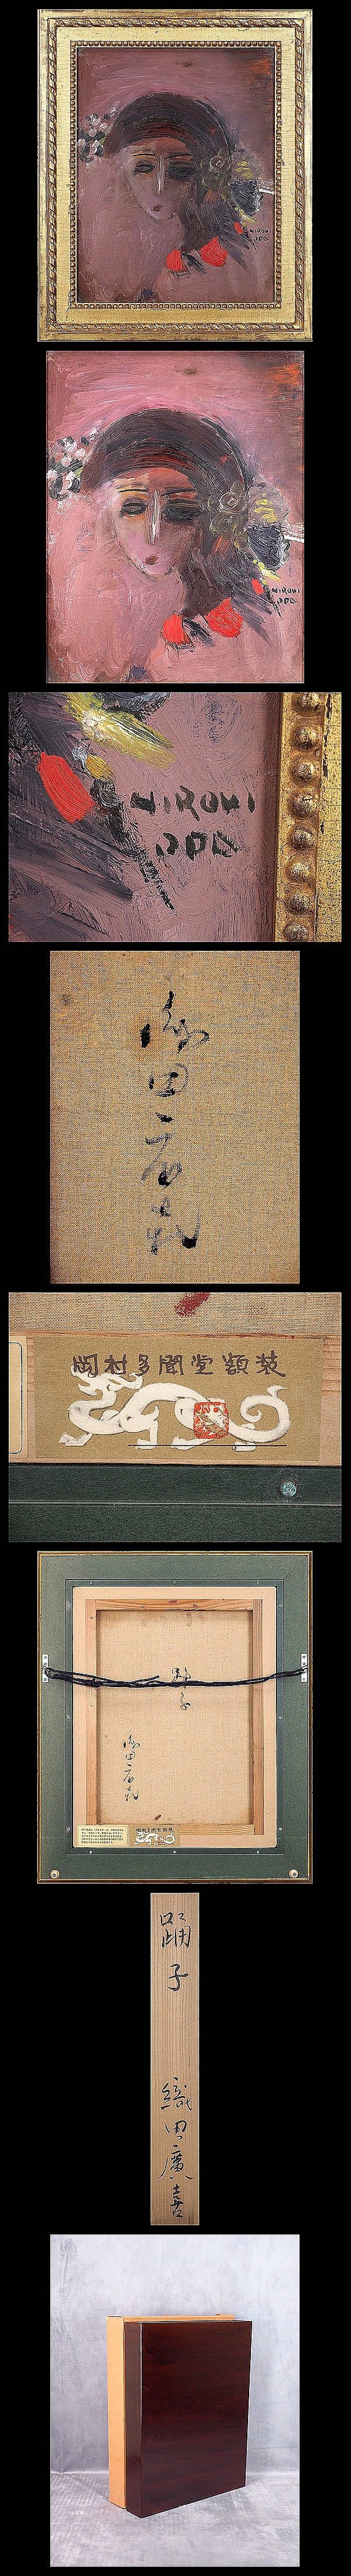 HIROKI
ODA
HIROKI
ODA
HIROKI
ODA
織田广喜
岡村多聞堂額装
踊子
織田广喜
岡村多聞堂額装
踊子
織田廣喜